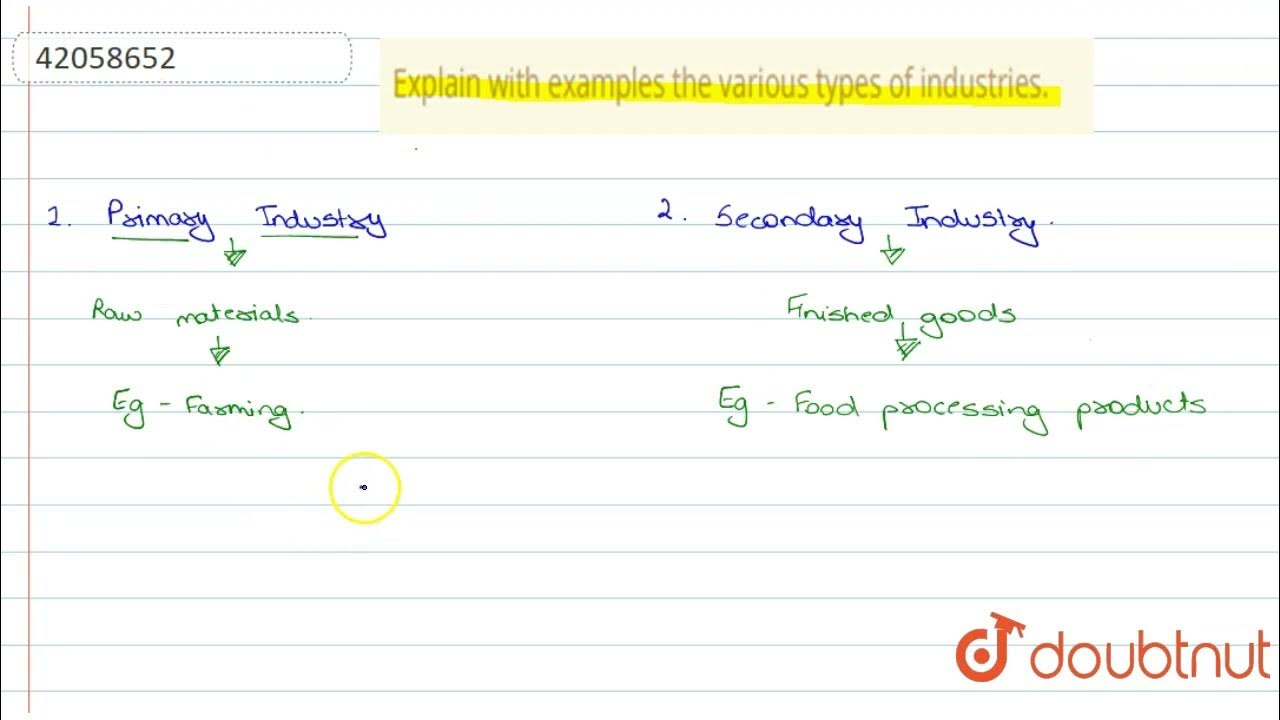 42058652
Explain with examples the various types of industries.
1. Primary Industry
2. Secondary Industry.
Raw materials.
Finished goods
Eg - Farming.
Eg - Food processing products
doubtnut